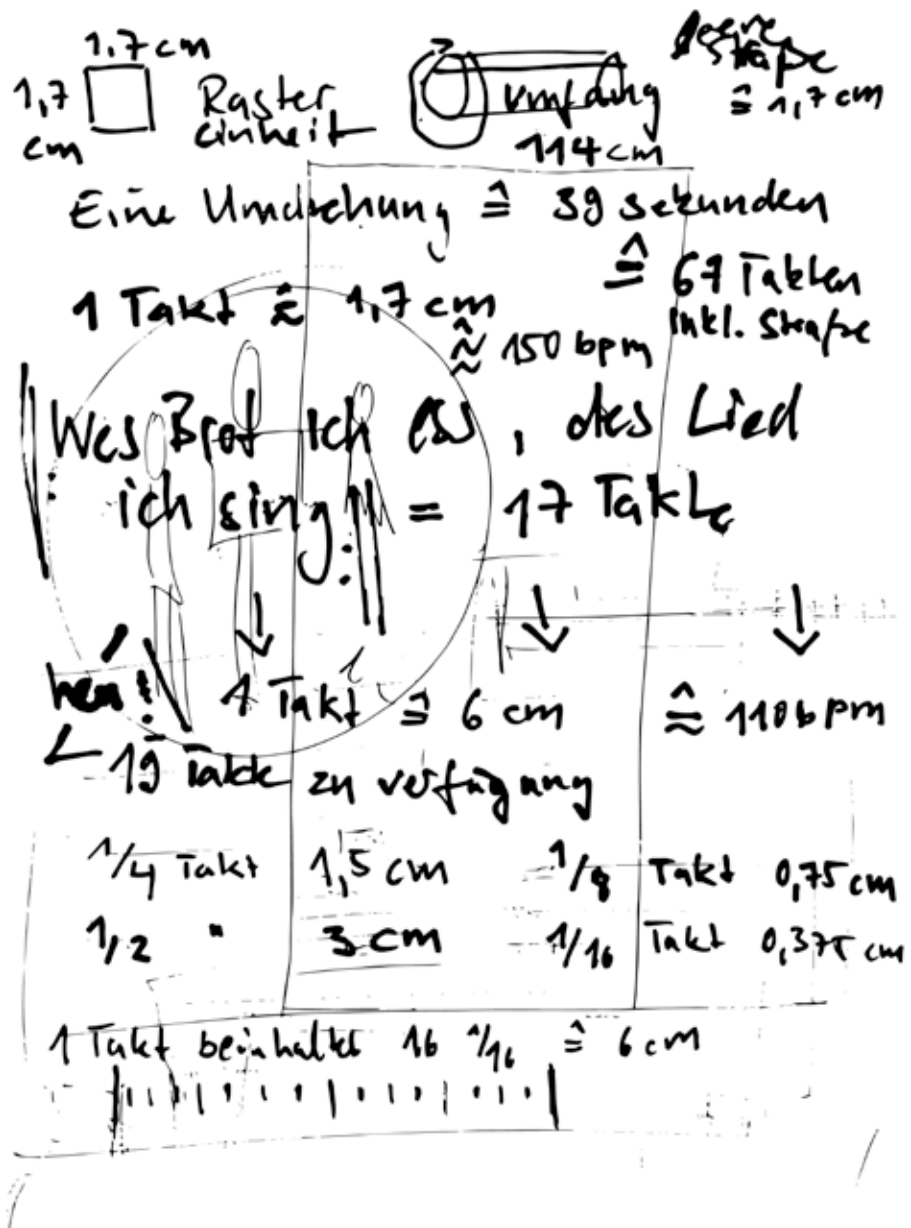 1,7 cm
1,7 cm
Raster
einheit
Umfang
114 cm
leere
Strafe
≙ 1,7 cm
Eine Umdrehung ≙ 39 sekunden
≙ 67 Takten
inkl. Strafe
1 Takt ≙ 1,7 cm
≈ 150 bpm
Wes Brot ich ess, des Lied
ich sing :|| = 17 Takte
↓ ↓ ↓
neu! 1 Takt ≙ 6 cm ≈ 110 bpm
19 Takte zu verfügung
1/4 Takt 1,5 cm 1/8 Takt 0,75 cm
1/2 " 3 cm 1/16 Takt 0,375 cm
1 Takt beinhaltet 16 1/16 ≙ 6 cm